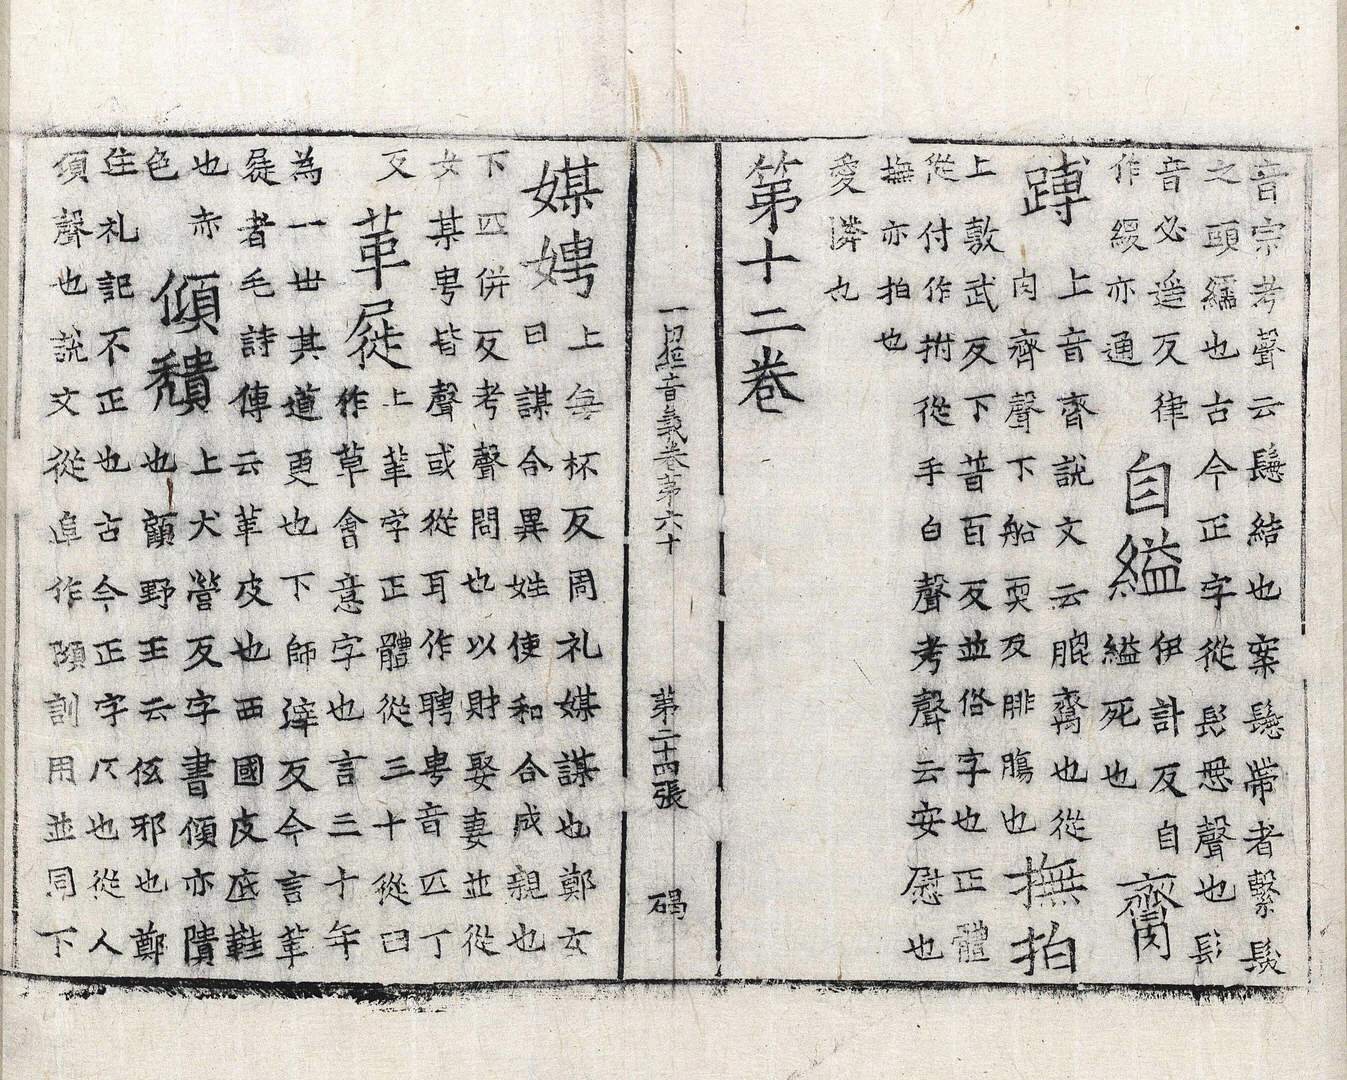 音宗考聲云鬘結也案鬘帶者繫髮
之頭繻也古今正字從髟恖聲也髟
音必遥反律
作緩亦通
自縊
伊計反自
縊死也
臍
蹲
上音齊說文云膍齎也從
肉齊聲下船耎反腓腸也
撫拍
上敷武反下普百反並俗字也正體
從付作拊從手白聲考聲云安慰也
撫亦拍也
愛憐也
第十二卷
一切經音義卷第六十 第二十四張 碣
媒娉
上每杯反周礼媒謀也鄭玄
曰謀合異姓使和合成親也
下匹併反考聲問也以財娶妻並從
女某甹皆聲或從耳作聘甹音匹丁
反
革屣
上革字正體從三十從臼
作草會意字也言三十年
為一世其道更也下師滓反今言革
屣者毛詩傳云革皮也西國皮底鞋
也赤
色
傾穨
上犬營反字書傾亦隤
也顧野王云伭邪也鄭
住札記不正也古今正字仄也從人
頃聲也說文從阜作隤訓用並同下